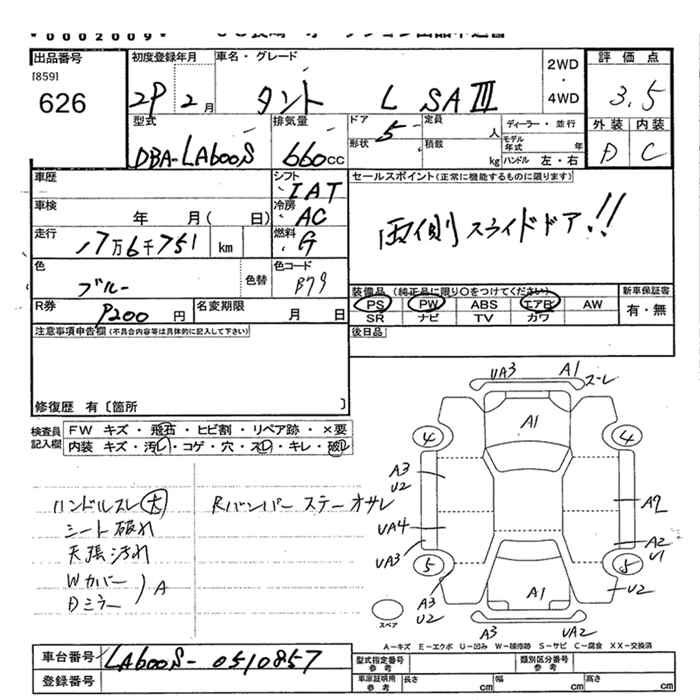 *0002009*
出品番号
[859]
626
初度登録年月
29 2月
車名・グレード
タント L SAⅢ
2WD
・
4WD
評価点
3.5
型式
DBA-LA600S
排気量
660cc
ドア
5
形状
定員
人
積載
kg
ディーラー・並行
モデル年式
年
ハンドル 左・右
外装 内装
D C
車歴
シフト
IAT
車検
年 月( 日)
冷房
AC
走行
17万6千751 km
燃料
G
セールスポイント(正常に機能するものに限ります)
両側スライドドア!!
色
ブルー
色替
色コード
B79
R券
9200円
名変期限
月 日
装備品(純正品に限り○をつけてください)
PS PW ABS エアB AW
SR ナビ TV カワ
新車保証書
有・無
注意事項申告欄(不具合内容等は具体的に記入して下さい)
後日品
修復歴 有〔箇所 〕
検査員記入欄
FW キズ・飛石・ヒビ割・リペア跡・×要
内装 キズ・汚レ・コゲ・穴・スレ・キレ・破レ
ハンドルスレ(大)
シート破れ
天張汚れ
Wカバー
Dミラー
A
Rバンパー ステーオサレ
UA3
A1
スレ
A1
4
4
A3
U2
UA4
UA3
A2
A2
U1
5
5
A3
U2
A1
U2
A3
UA2
スペア
A-キズ E-エクボ U-凹み W-補修跡 S-サビ C-腐食 XX-交換済
車台番号
LA600S-0510857
登録番号
型式指定番号
参考
類別区分番号
参考
車庫証明用
参考
長さ cm
幅 cm
高さ cm